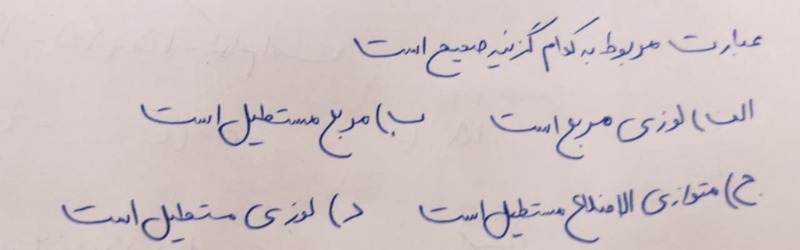 عبارت مربوط به کدام گزینه صحیح است
الف) لوزی مربع است ب) مربع مستطیل است
ج) متوازی الاضلاع مستطیل است د) لوزی مستطیل است